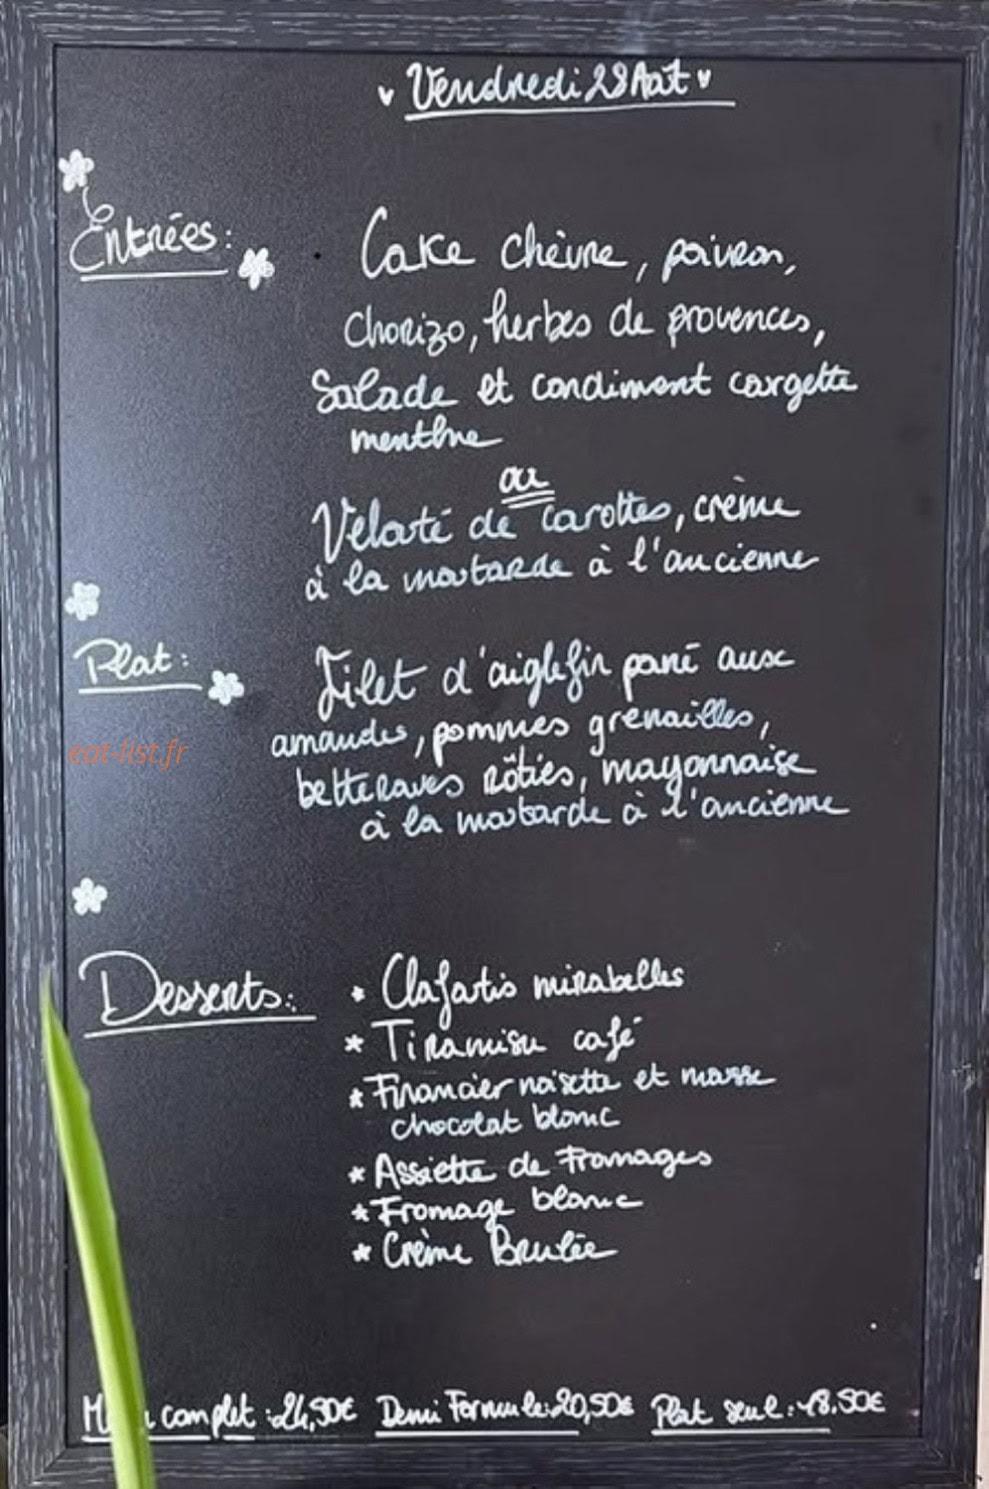 Vendredi 28 Août
Entrées :
Cake chèvre, poivron,
chorizo, herbes de provences,
Salade et condiment courgette
menthe
ou
Velouté de carottes, crème
à la moutarde à l'ancienne
Plat :
Filet d'aiglefin pané aux
amandes, pommes grenailles,
betteraves rôties, mayonnaise
à la moutarde à l'ancienne
eat-list.fr
Desserts :
* Clafoutis mirabelles
* Tiramisu café
* Financier noisette et mousse
chocolat blanc
* Assiette de Fromages
* Fromage blanc
* Crème Brulée
complet : 24,50€ Demi Formule : 20,50€ Plat seul : 18.50€